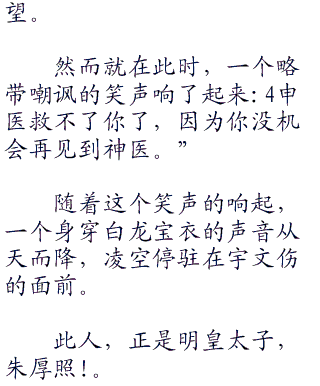 望。
然而就在此时，一个略
带嘲讽的笑声响了起来：4申
医救不了你了，因为你没机
会再见到神医。”
随着这个笑声的响起，
一个身穿白龙宝衣的声音从
天而降，凌空停驻在宇文伤
的面前。
此人，正是明皇太子，
朱厚照！。